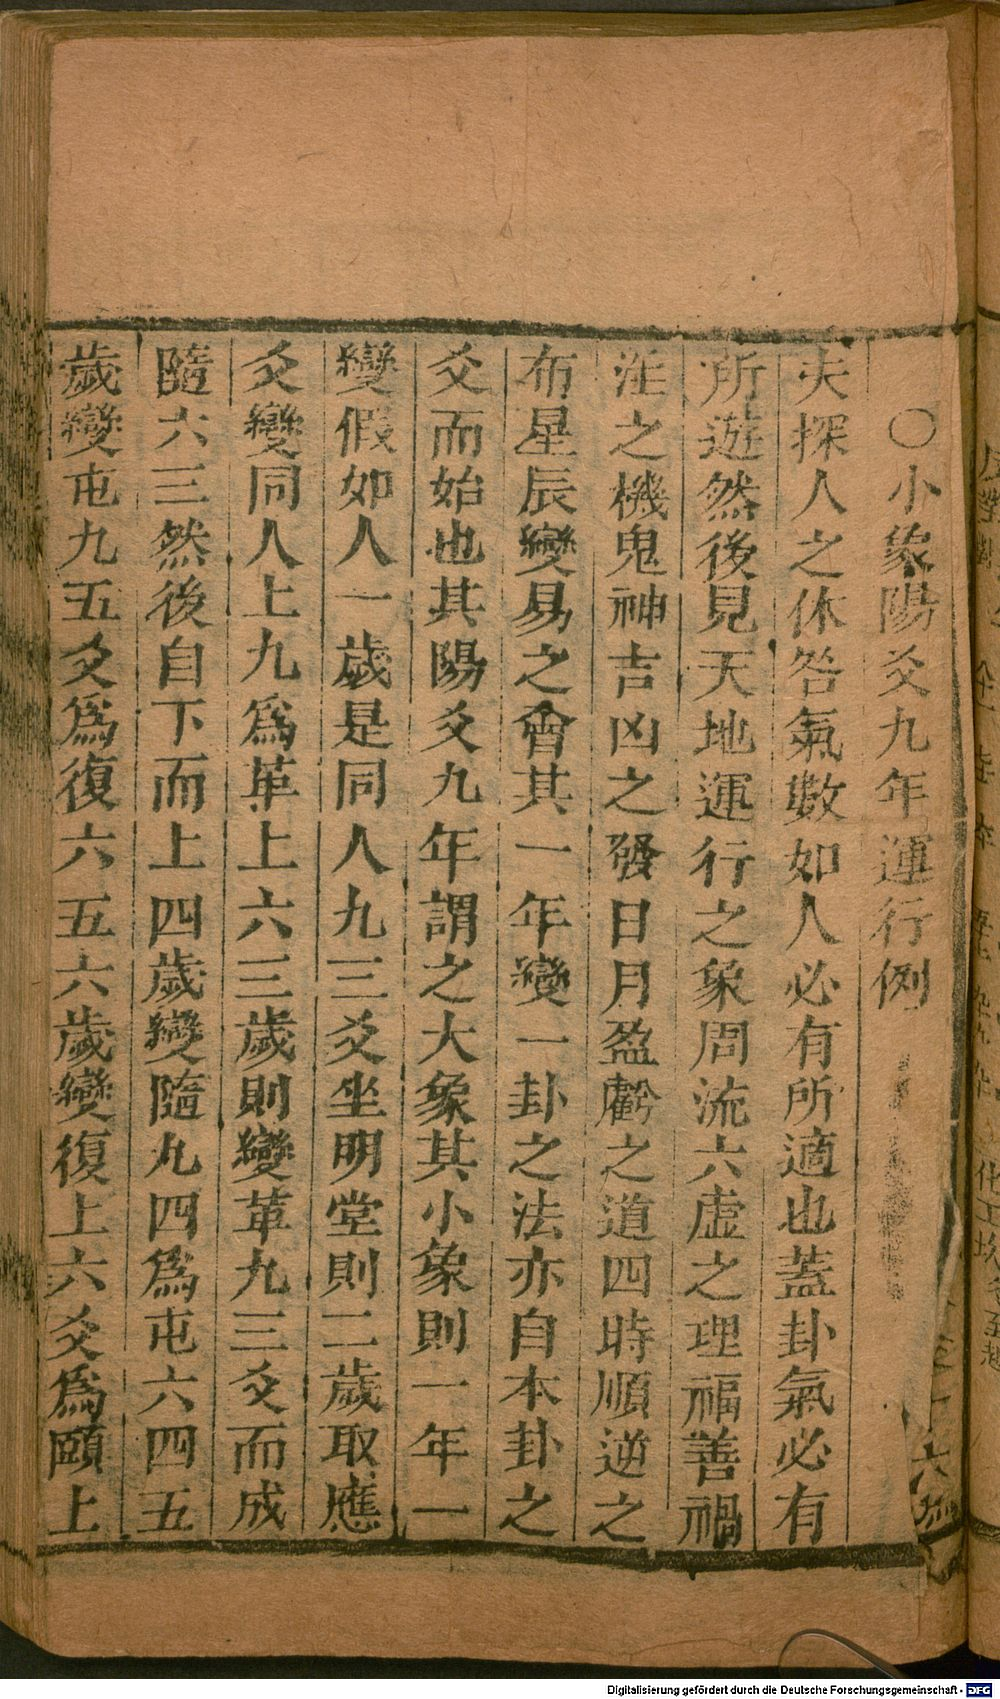 〇小象陽爻九年運行例
夫探人之休咎氣數如人必有所適也蓋卦氣必有
所遊然後見天地運行之象周流六虛之理福善禍
淫之機鬼神吉凶之發日月盈虧之道四時順逆之
布星辰變易之會其一年變一卦之法亦自本卦之
爻而始也其陽爻九年謂之大象其小象則一年一
變假如人一歲是同人九三爻坐明堂則二歲取應
爻變同人上九爲革上六三歲則變革九三爻而成
隨六三然後自下而上四歲變隨九四爲屯六四五
歲變屯九五爻爲復六五六歲變復上六爻爲頤上
Digitalisierung gefördert durch die Deutsche Forschungsgemeinschaft - DFG